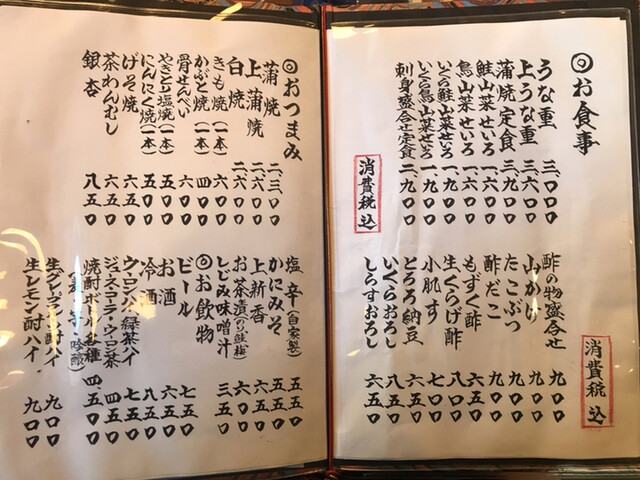 ◎お食事
うな重 三、〇〇〇
上うな重 三、六〇〇
蒲焼定食 三、九〇〇
鮭山菜せいろ 一、六〇〇
鳥山菜せいろ 一、六〇〇
いくら鮭山菜せいろ 一、九〇〇
いくら鳥山菜せいろ 一、九〇〇
刺身盛合せ定食 二、九〇〇
消費税込
酢の物盛合せ 九〇〇
山かけ 九〇〇
たこぶつ 九〇〇
酢だこ 九〇〇
もずく酢 六五〇
生くらげ酢 八〇〇
小肌す 七〇〇
とろろ納豆 六五〇
いくらおろし 八五〇
しらすおろし 六五〇
消費税込
◎おつまみ
蒲焼 二、三〇〇
上蒲焼 二、六〇〇
白焼 二、六〇〇
きも焼(一本) 六〇〇
かぶと焼(一本) 四〇〇
骨せんべい 六〇〇
やきとり塩焼(一本) 五〇〇
にんにく焼(一本) 五〇〇
げそ焼 六五〇
茶わんむし 六五〇
銀杏 八五〇
塩辛(自家製) 五五〇
かにみそ 五五〇
上新香 六五〇
お茶漬(のり鮭梅) 六五〇
しじみ味噌汁 三五〇
◎お飲物
ビール 七五〇
お酒 六五〇
冷酒 八五〇
ウーロンハイ・緑茶ハイ 七五〇
ジュース・コーラ・ウーロン茶 四五〇
焼酎ボトル各種 四、五〇〇
(麦・芋・吟醸)
生グレープ酎ハイ 九〇〇
生レモン酎ハイ 九〇〇